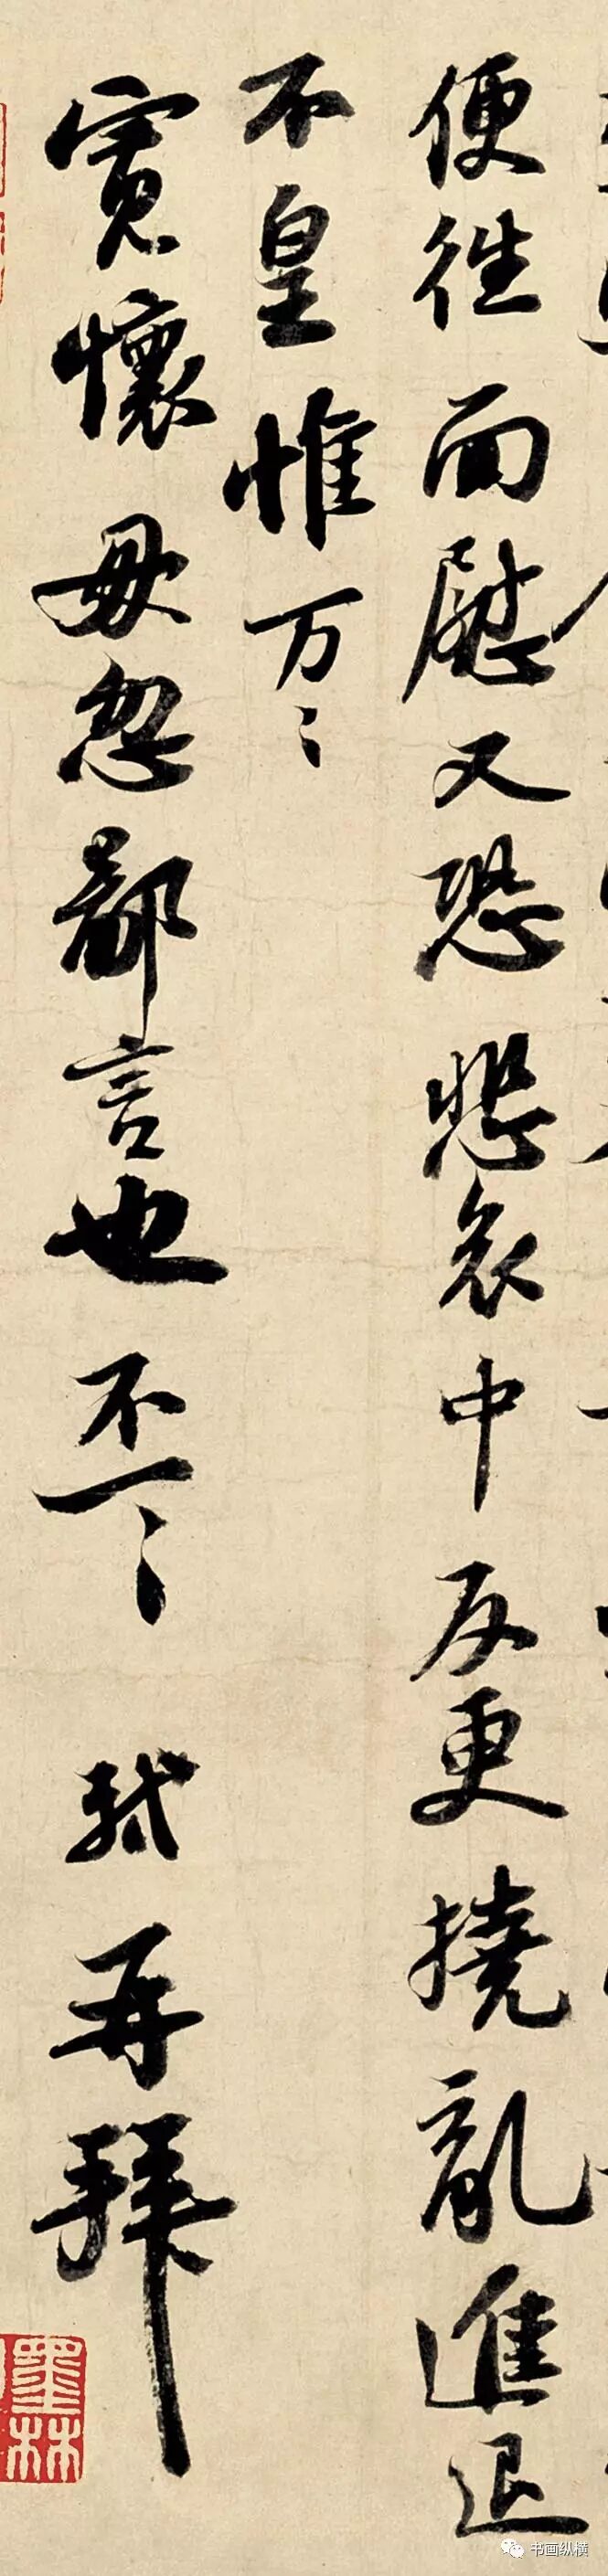 便往面慰又恐悲哀中反更撓亂進退
不皇惟万〻
寬懷毋忽鄙言也不一〻　軾再拜
墨林
书画纵横